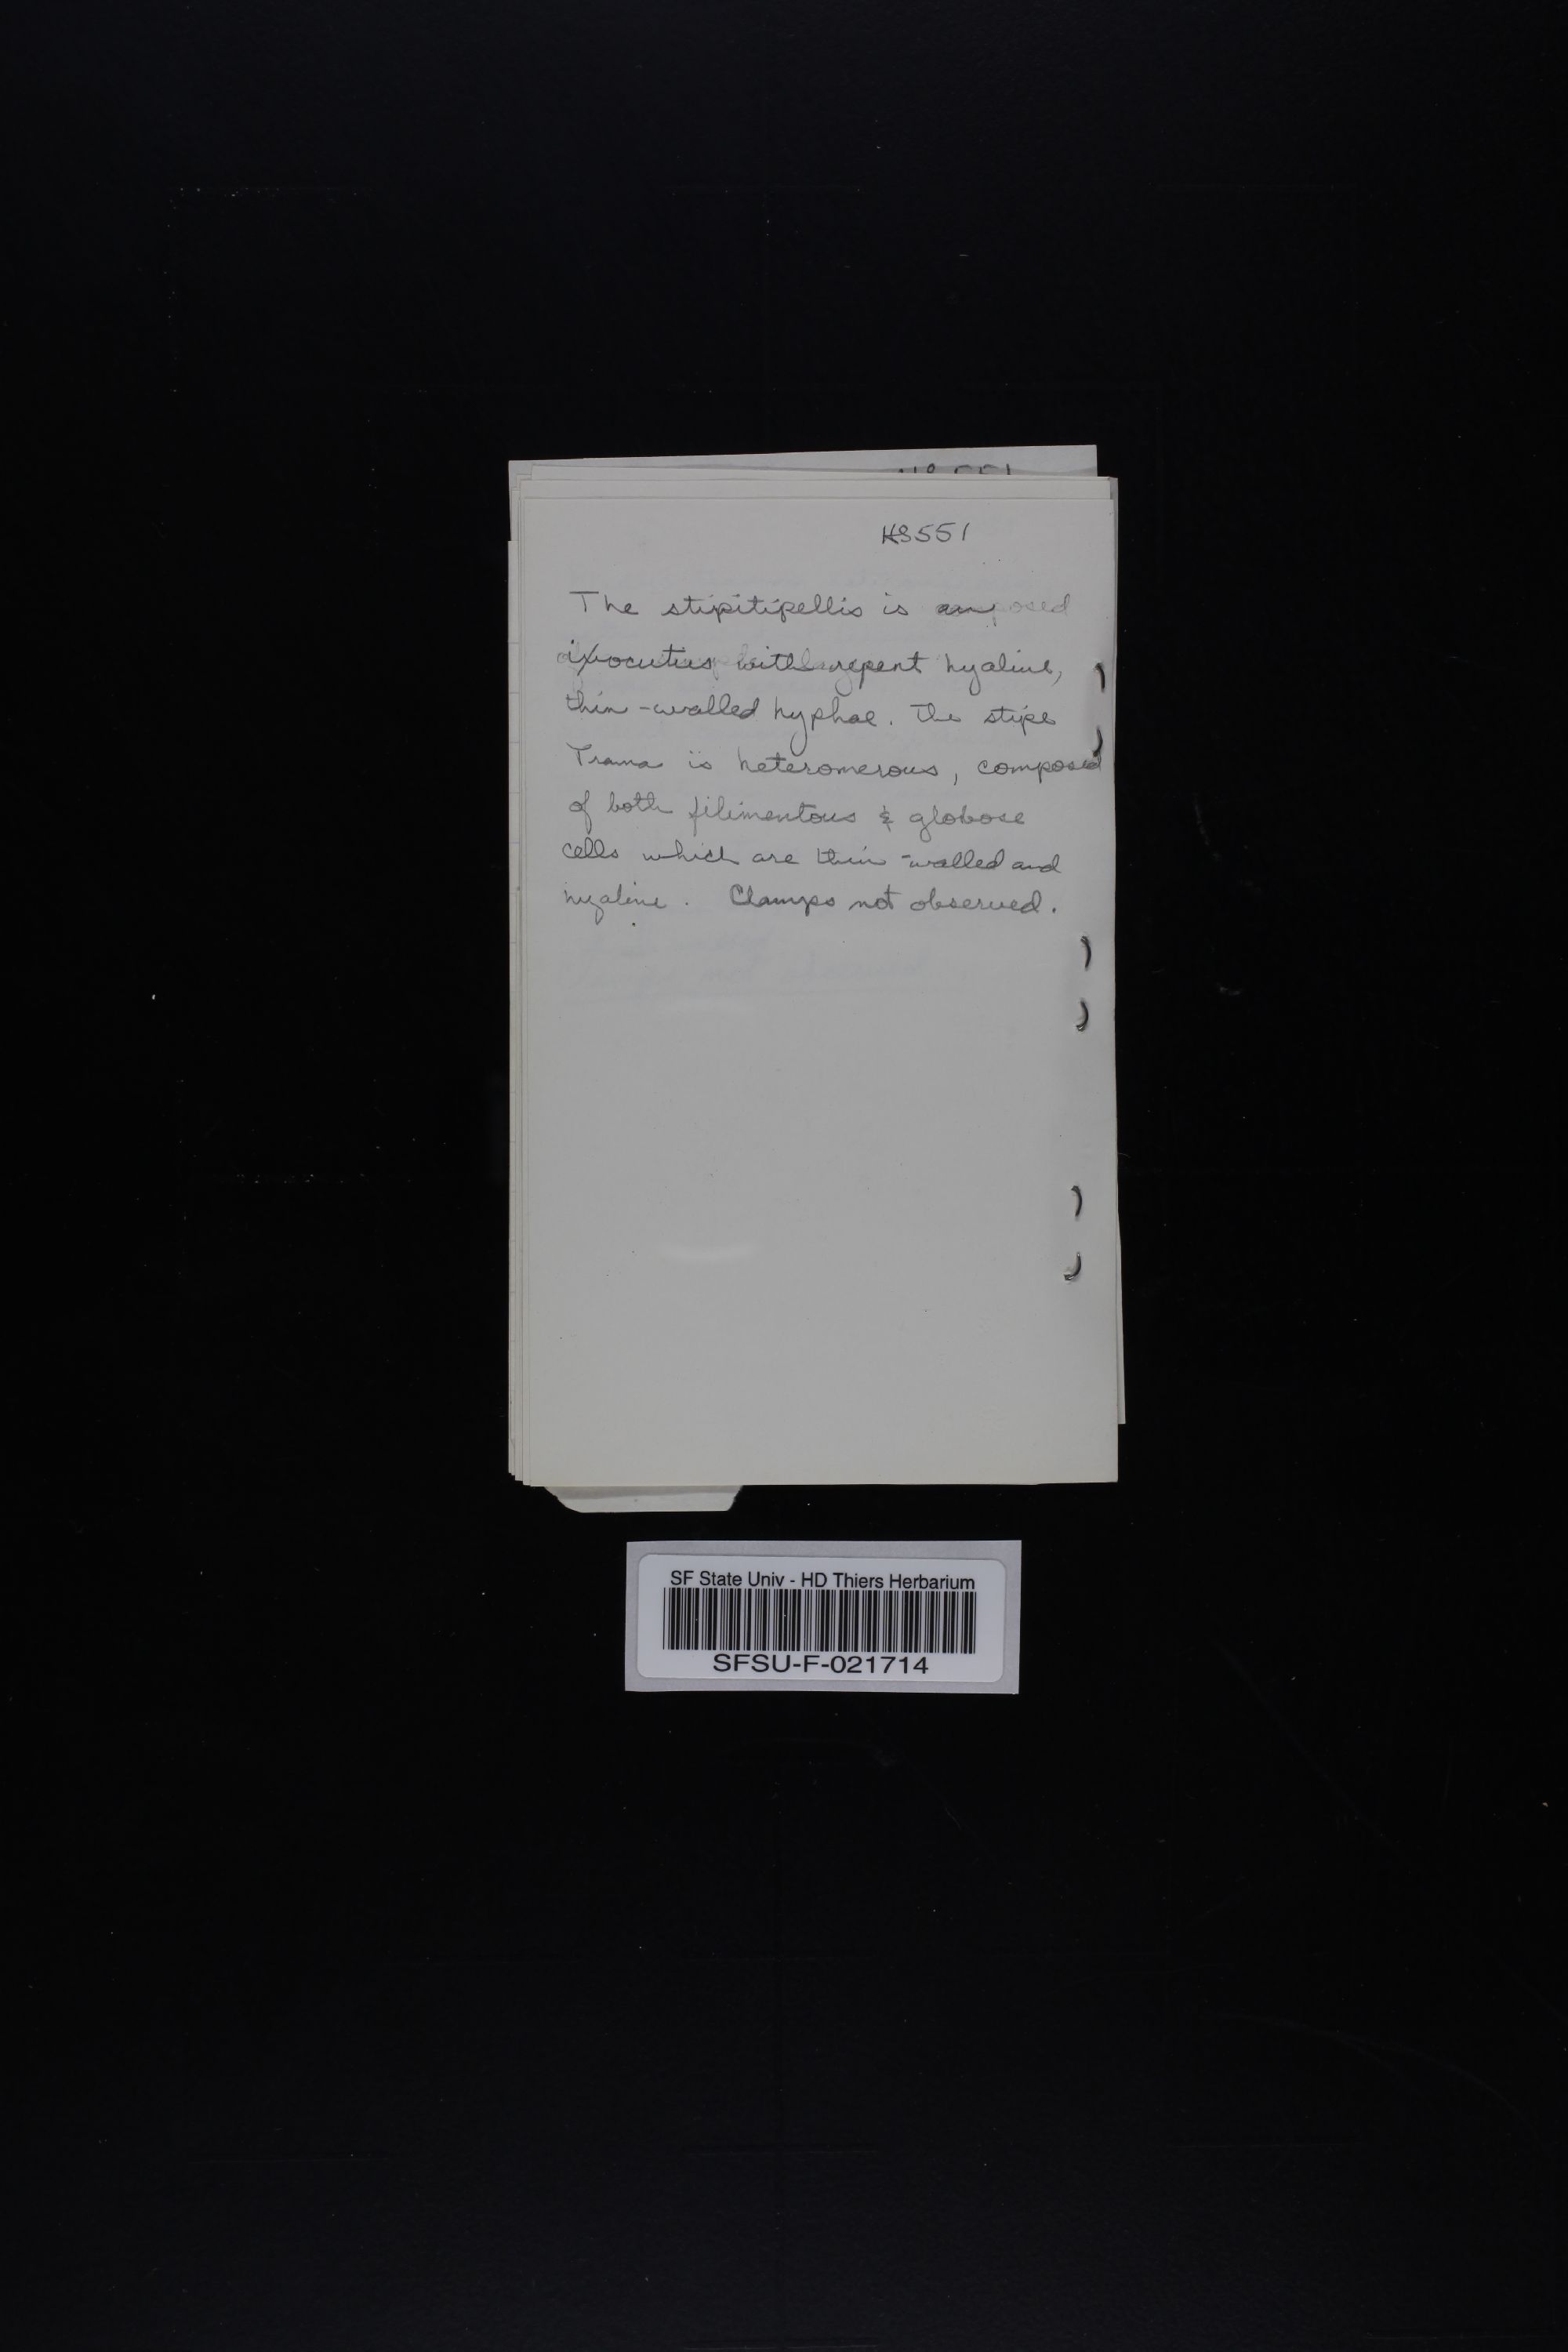 HS551
The stipitipellis is an
ixocutus with repent hyaline,
thin-walled hyphae. The stipe
Trama is heteromerous, composed
of both filimentous & globose
cells which are thin-walled and
hyaline. Clamps not observed.
SF State Univ - HD Thiers Herbarium
SFSU-F-021714